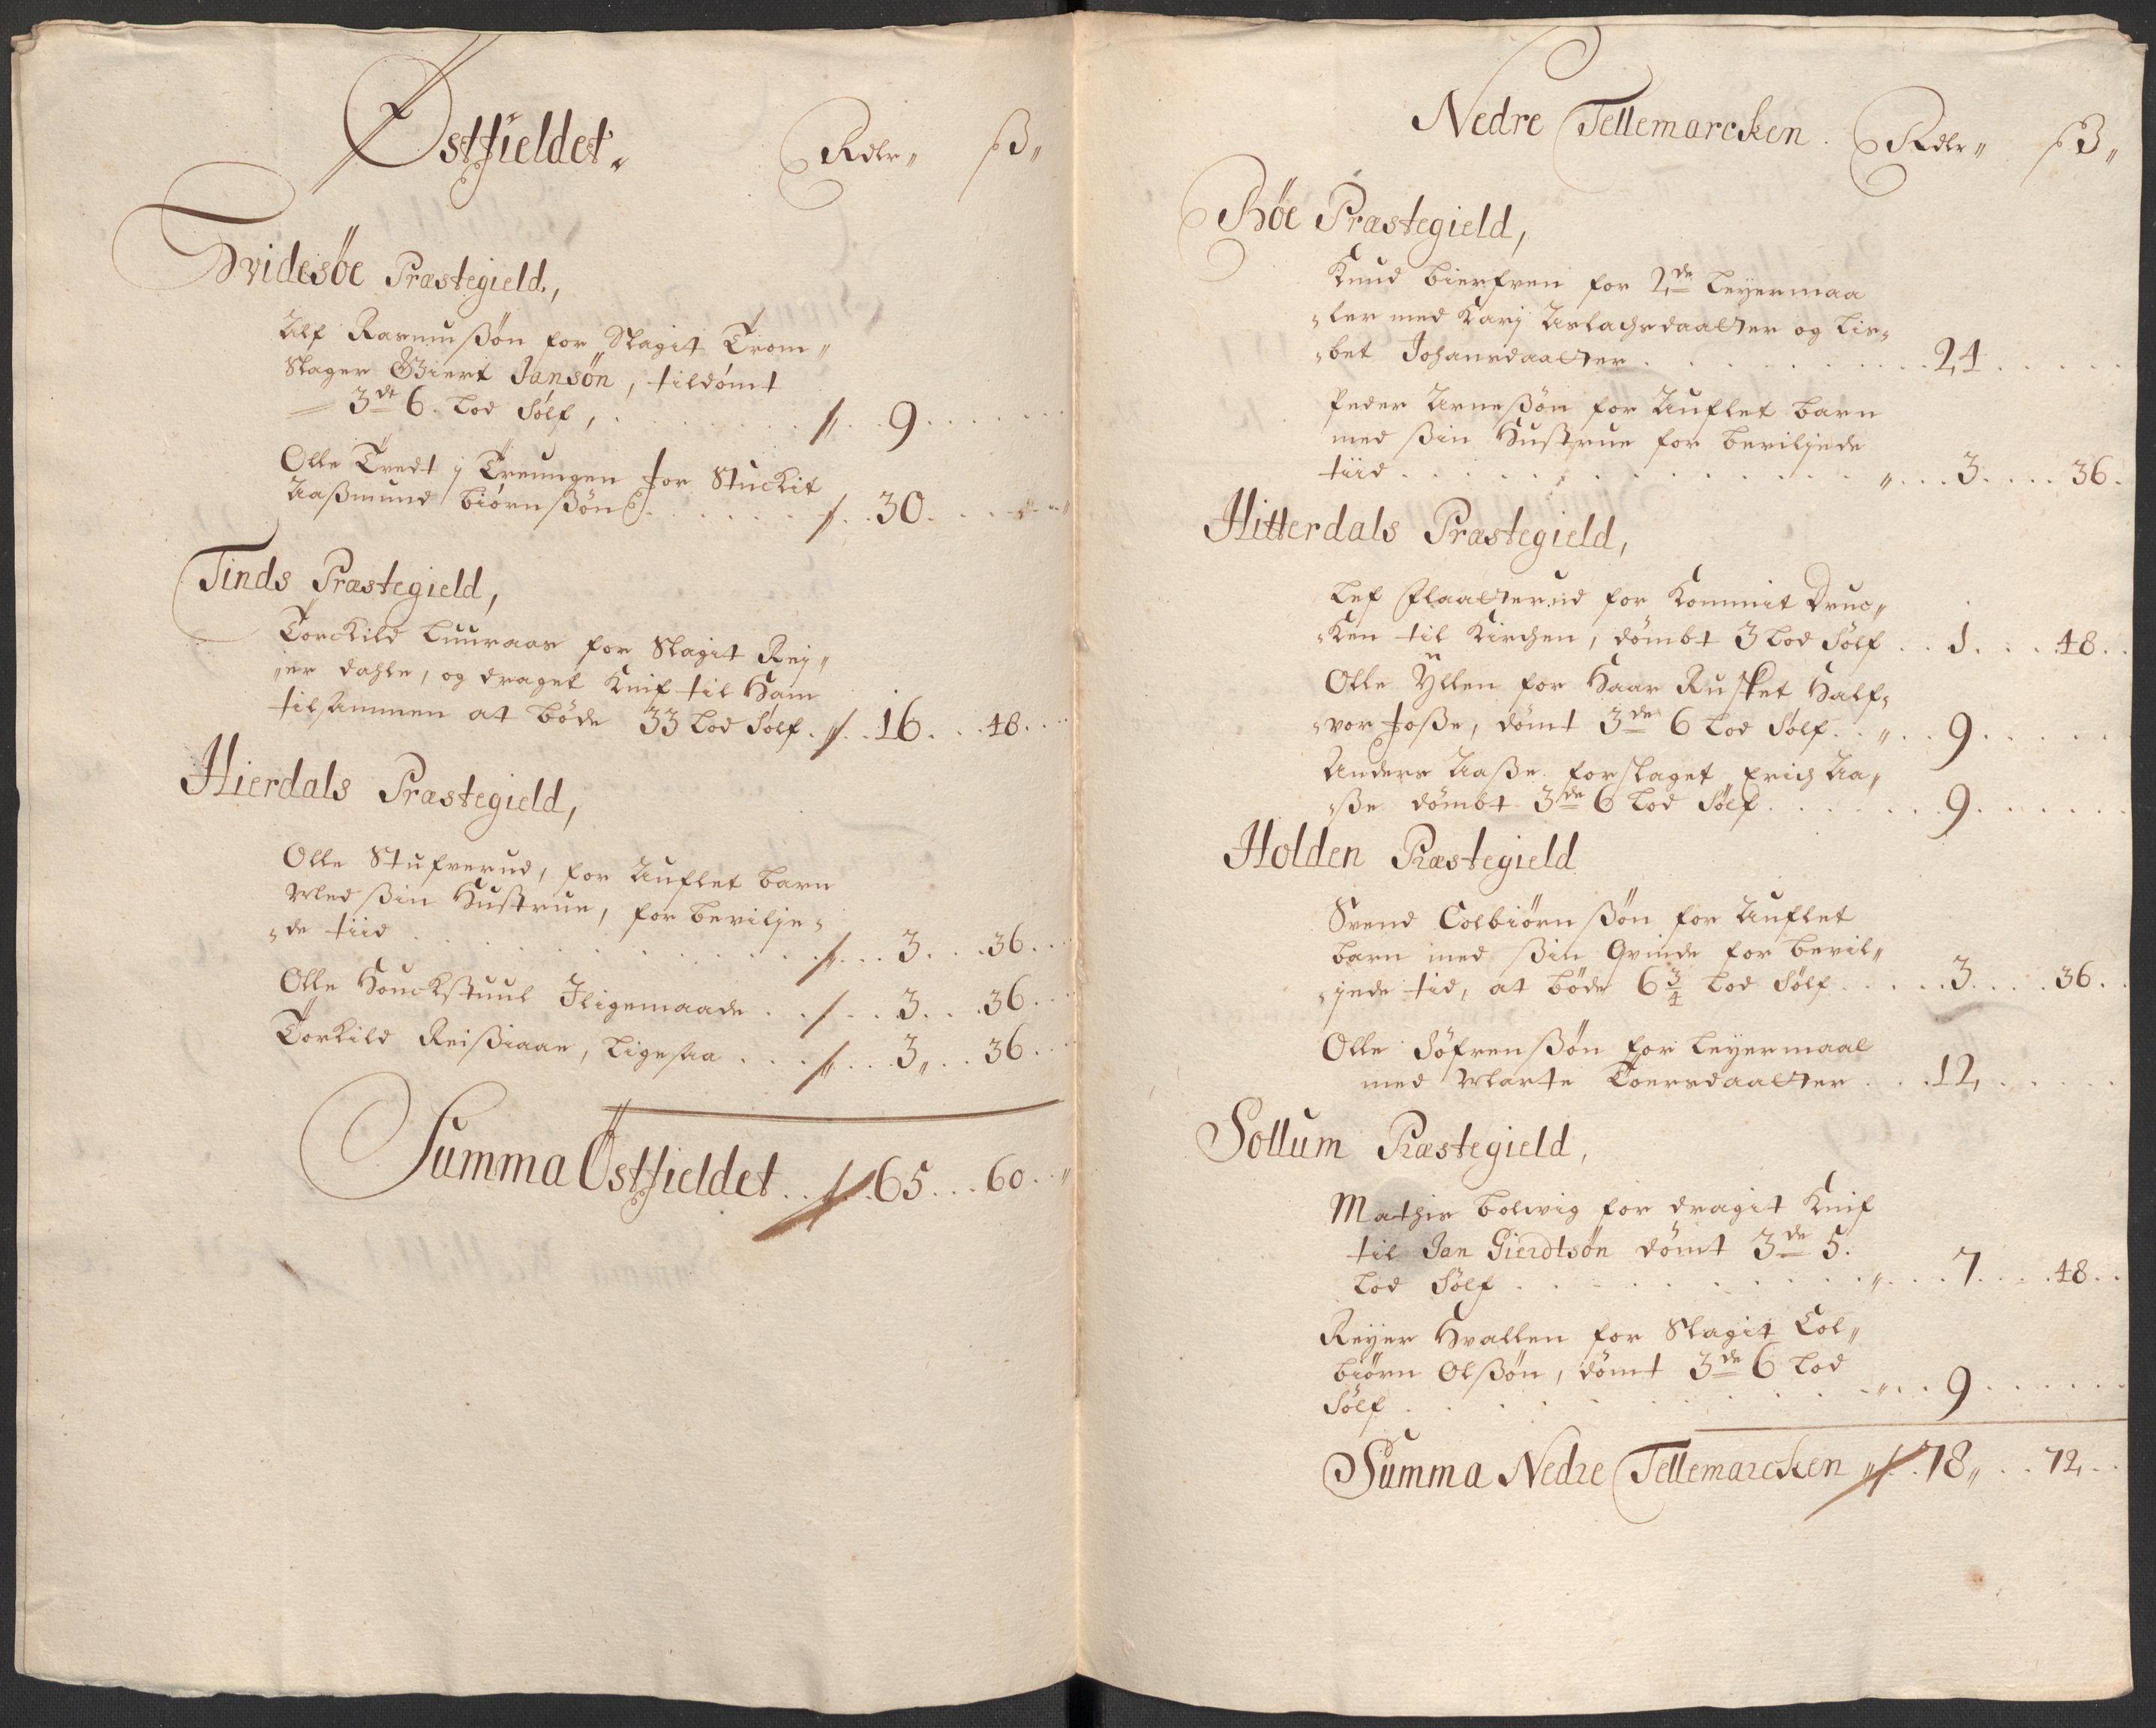 Østfieldet. Rdlr ß
Hvidesøe Præstegield,
Alf Rasmußøn for Slagit Trom
Slager Giert Jansøn, tildømt
3de 6. Lod Sølf, 9
Olle Tvedt j Treungen for Stuckit
Aaßmund Biørnßøn 30
Tinds Præstegield,
Torckild Luuraas for Slagit Rej
er Dahle, og draget Knif til Ham
tilsammen at bøde 33 Lod Sølf 16 48
Hierdals Præstegield,
Olle Stufverud, for Auflet barn
Med ßin Hustrue, for bevilje
de tiid 3 36
Olle Houckstuul Iligemaade 3 36
Torkild Reißiaae, Ligesaa 3 36
Summa Østfieldet 65 60
Nedre Tellemarcken. Rdlr ß
Bøe Præstegield,
Knud Bierfven for 2de Leyermaa
ler med Karj Aslachsdaatter og Lis
bet Johansdaatter 24
Peder Arneßøn for Auflet barn
med ßin Hustrue for beviljede
tiid 3 36
Hitterdals Præstegield,
Lef Flaatterud for Kommit Druc
ken til Kirchen, dømbt 3 Lod Sølf 1 48
Olle Yllen for Haar Rusket Half
vor Foße, dømt 3de 6 Lod Sølf 9
Anders Aaße forslaget Erich Aa
ße dømbt 3de 6 Lod Sølf 9
Holden Præstegield
Svend Colbiørnßøn for Auflet
barn med ßin Qvinde for bevil
jede tid, at bøde 6 3/4 Lod Sølf 3 36
Olle Søfrenßøn for Leyermaal
med Marte Toersdaatter 12
Sollum Præstegield,
Mathis Bolvig for dragit Knif
til Jan Gierdtsøn dømt 3de 5.
Lod Sølf 7 48
Reyer Hvallen for Slagit Col
biørn Olßøn, dømt 3de 6 Lod
Sølf 9
Summa Nedre Tellemarcken 78 72